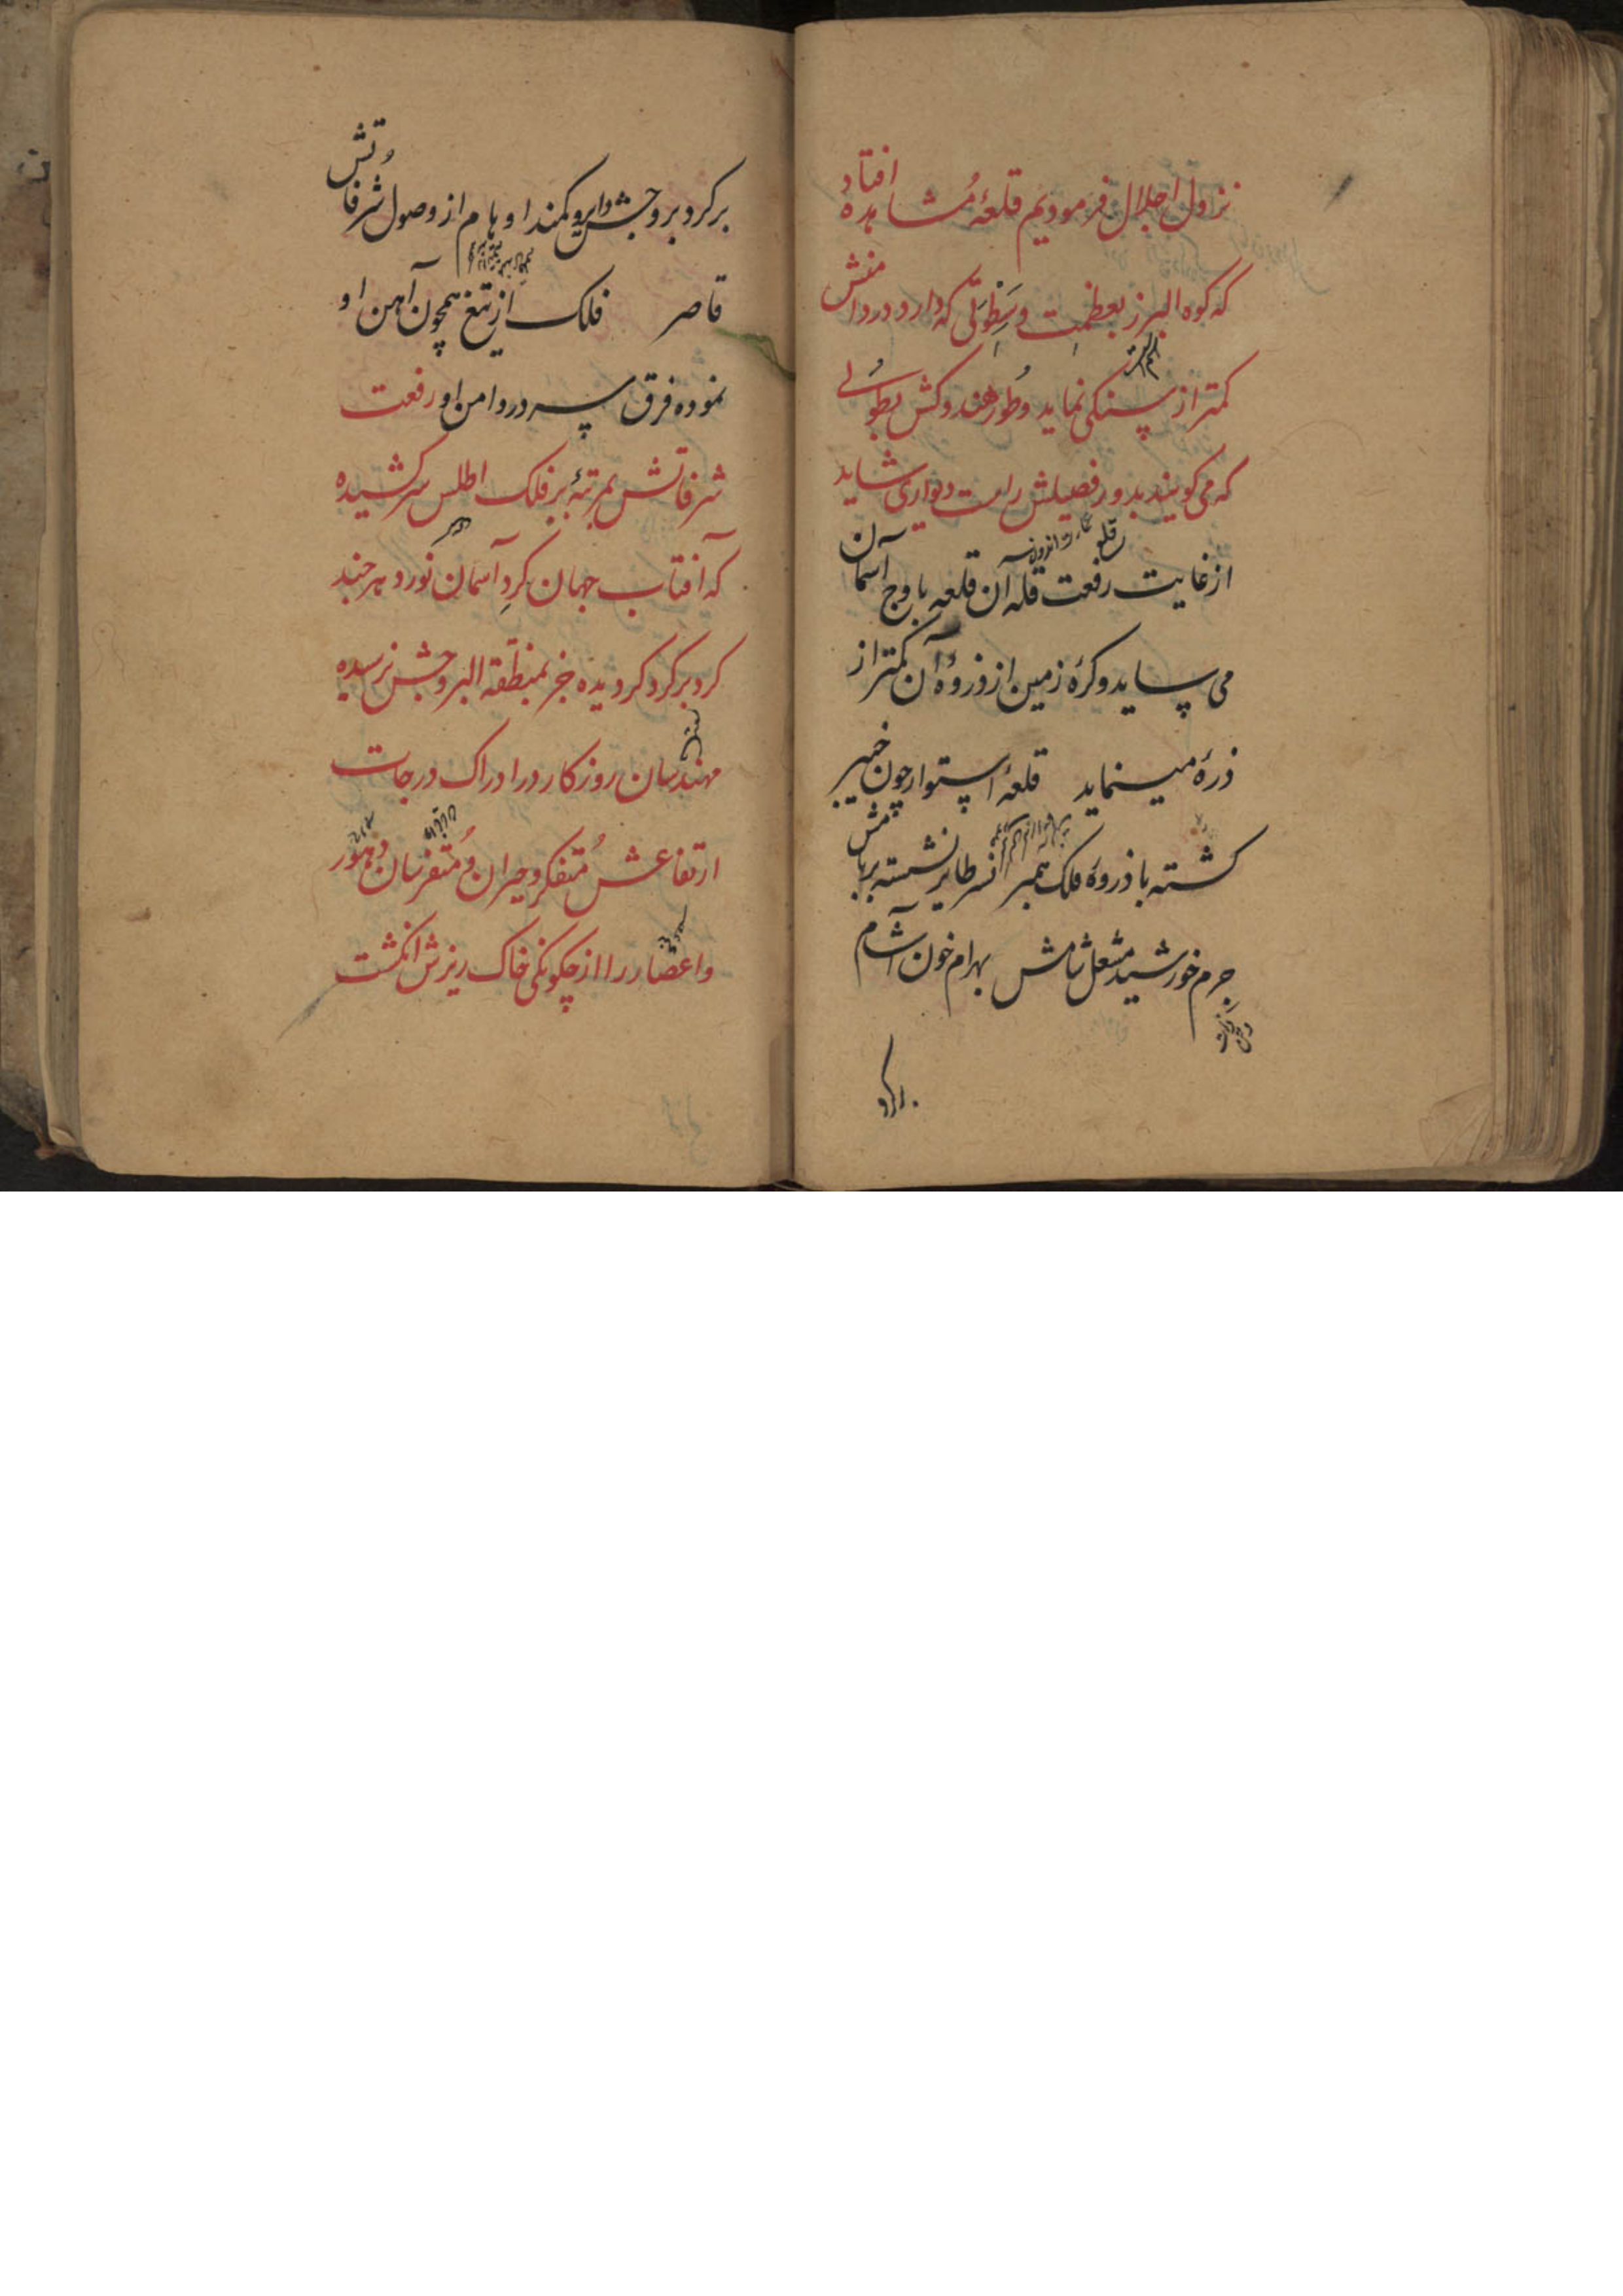 نزول اجلال فرمودیم قلعهٔ مُشاهده افتاد
که کوه البرز بعظمت و سَطوَتی که دارد در دامنش
کمتر از سنکی نماید و طُور هندوکش بطُولی
که می کویند بدور فصیلش راست دیواری شاید
از غایت رفعت قله آن قلعه باوج آسمان
می ساید و کرهٔ زمین از ذروهٔ آن کمتر از
ذرهٔ مینماید قلعهٔ استوار چون خیبر
کشته با ذروهٔ فلک همبر نسر طایر نشسته بر بامش
جرم خورشید مشعل شامش بهرام خون آشام
بر کرد بروجش دایر و کمند اوهام از وصول شرفاتش
قاصر فلک از تیغ همچون آهن او
نموده فرق سر در دامن او رفعت
شرفاتش بمرتبهٔ بر فلک اطلس سر کشیده
که آفتاب جهان کردِ آسمان نورد هر چند
کرد بر کرد کردیده جز بمنطقة البروجش نرسیده
مهندسان روزکار در ادراک درجات
ارتفاعش مُتفکر و حیران و مُتفرسان دهور
و اعصار را از چکونکی خاک ریزش انکشت